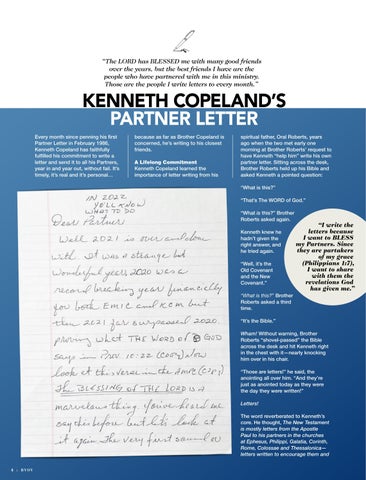 “The LORD has BLESSED me with many good friends
over the years, but the best friends I have are the
people who have partnered with me in this ministry.
Those are the people I write letters to every month.”
KENNETH COPELAND’S
PARTNER LETTER
Every month since penning his first
Partner Letter in February 1986,
Kenneth Copeland has faithfully
fulfilled his commitment to write a
letter and send it to all his Partners,
year in and year out, without fail. It’s
timely, it’s real and it’s personal…
because as far as Brother Copeland is
concerned, he’s writing to his closest
friends.
A Lifelong Commitment
Kenneth Copeland learned the
importance of letter writing from his
spiritual father, Oral Roberts, years
ago when the two met early one
morning at Brother Roberts’ request to
have Kenneth “help him” write his own
partner letter. Sitting across the desk,
Brother Roberts held up his Bible and
asked Kenneth a pointed question:
“What is this?”
“That’s The WORD of God.”
“What is this?” Brother
Roberts asked again.
Kenneth knew he
hadn’t given the
right answer, and
he tried again.
“Well, it’s the
Old Covenant
and the New
Covenant.”
“What is this?” Brother
Roberts asked a third
time.
“It’s the Bible.”
Wham! Without warning, Brother
Roberts “shovel-passed” the Bible
across the desk and hit Kenneth right
in the chest with it—nearly knocking
him over in his chair.
“Those are letters!” he said, the
anointing all over him. “And they’re
just as anointed today as they were
the day they were written!”
Letters!
The word reverberated to Kenneth’s
core. He thought, The New Testament
is mostly letters from the Apostle
Paul to his partners in the churches
at Ephesus, Philippi, Galatia, Corinth,
Rome, Colossae and Thessalonica—
letters written to encourage them and
“I write the
letters because
I want to BLESS
my Partners. Since
they are partakers
of my grace
(Philippians 1:7),
I want to share
with them the
revelations God
has given me.”
IN 2022
YOU'LL KNOW
WHAT TO DO
Dear Partner
Well 2021 is over and done
with. It was a strange but
wonderful year. 2020 was a
record breaking year financially
for both EMIC and KCM but
then 2021 far surpassed 2020
proving what THE WORD of GOD
says in Prov. 10:22. Now
look at this verse in the
The BLESSING of THE LORD is a
marvelous thing. You've heard me
say this before but let's look at
it again. The very first sound or
4 : BVOV